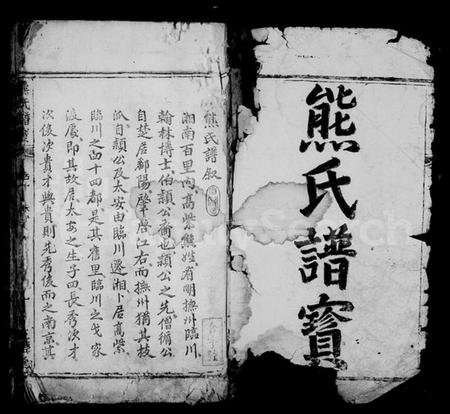 熊氏譜寶
熊氏譜叙
湘南百里内高柴熊姓有明撫州臨川
翰林博士伯顓公裔也顓公之先僧循公
自楚居鄱陽肇啓江右而撫州猶其枝
派自顓公及太安由臨川遷湘卜居高柴
臨川之四十四都是其舊里臨川之戈家
渡屢即其故居太安之生子四長秀次才
次俊次貴才與貴則先秀俊而之南京其